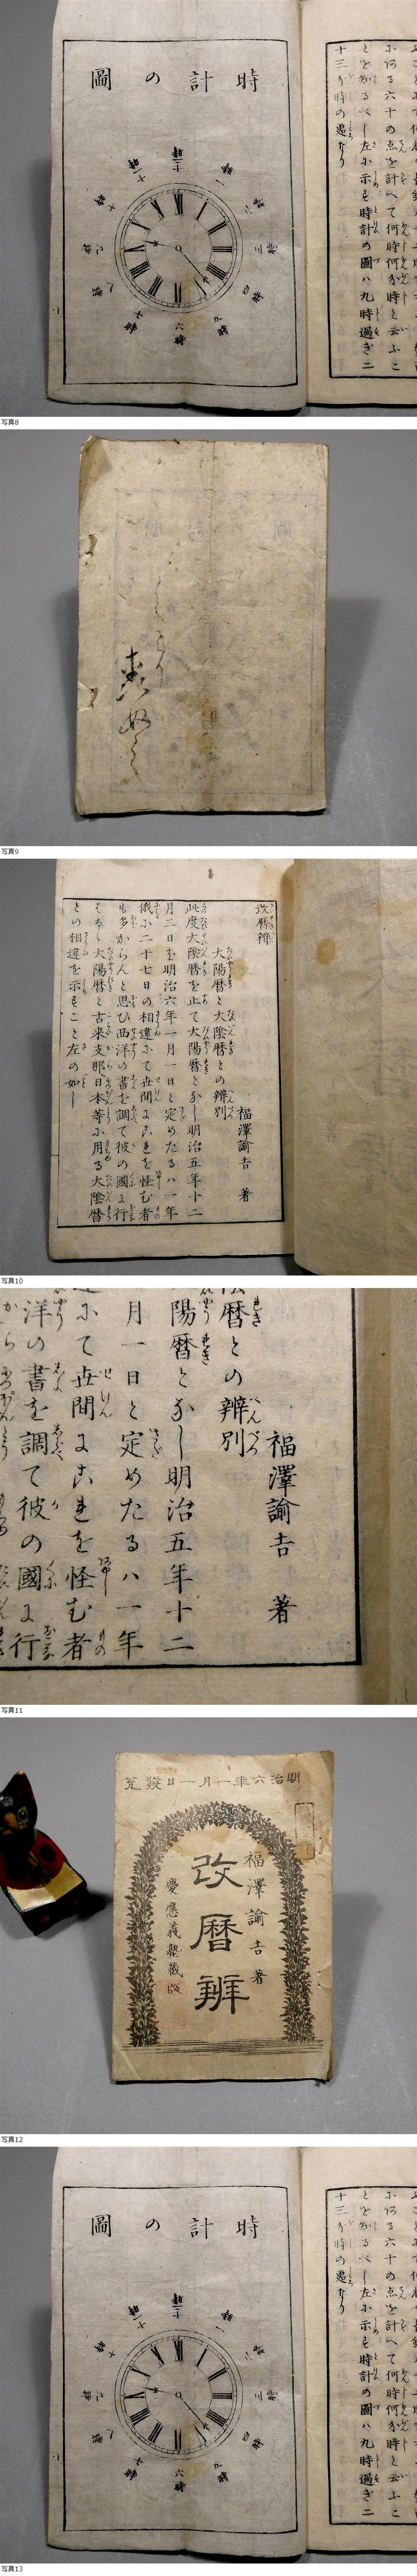 時計の圖
十二時
一時
二時
三時
四時
五時
六時
七時
八時
九時
十時
十一時
ホある六十の点を計へて何時何分時と云ふこ
とを知るべし左に示す時計の圖ハ九時過ぎ二
十三分時の處なり
写真8
写真9
改暦辨
福澤諭吉 著
太陽暦と太陰暦との辨別
此度太陰暦を止て太陽暦となし明治五年十二
月三日を明治六年一月一日と定めたるハ一年
俄に二十七日の相違にて世間にこれを怪む者
も多からんと思ひ西洋の書を調て彼の國に行
はるゝ太陽暦と古来支那日本等に用る太陰暦
との相違を示すこと左の如し
写真10
福澤諭吉 著
陰暦との辨別
陽暦となし明治五年十二
月一日と定めたるハ一年
にて世間にこれを怪む者
洋の書を調て彼の國に行
写真11
明治六年一月一日發兌
福澤諭吉著
改暦辨
慶應義塾蔵版
写真12
時計の圖
十二時
一時
二時
三時
四時
五時
六時
七時
八時
九時
十時
十一時
ホある六十の点を計へて何時何分時と云ふこ
とを知るべし左に示す時計の圖ハ九時過ぎ二
十三分時の處なり
写真13